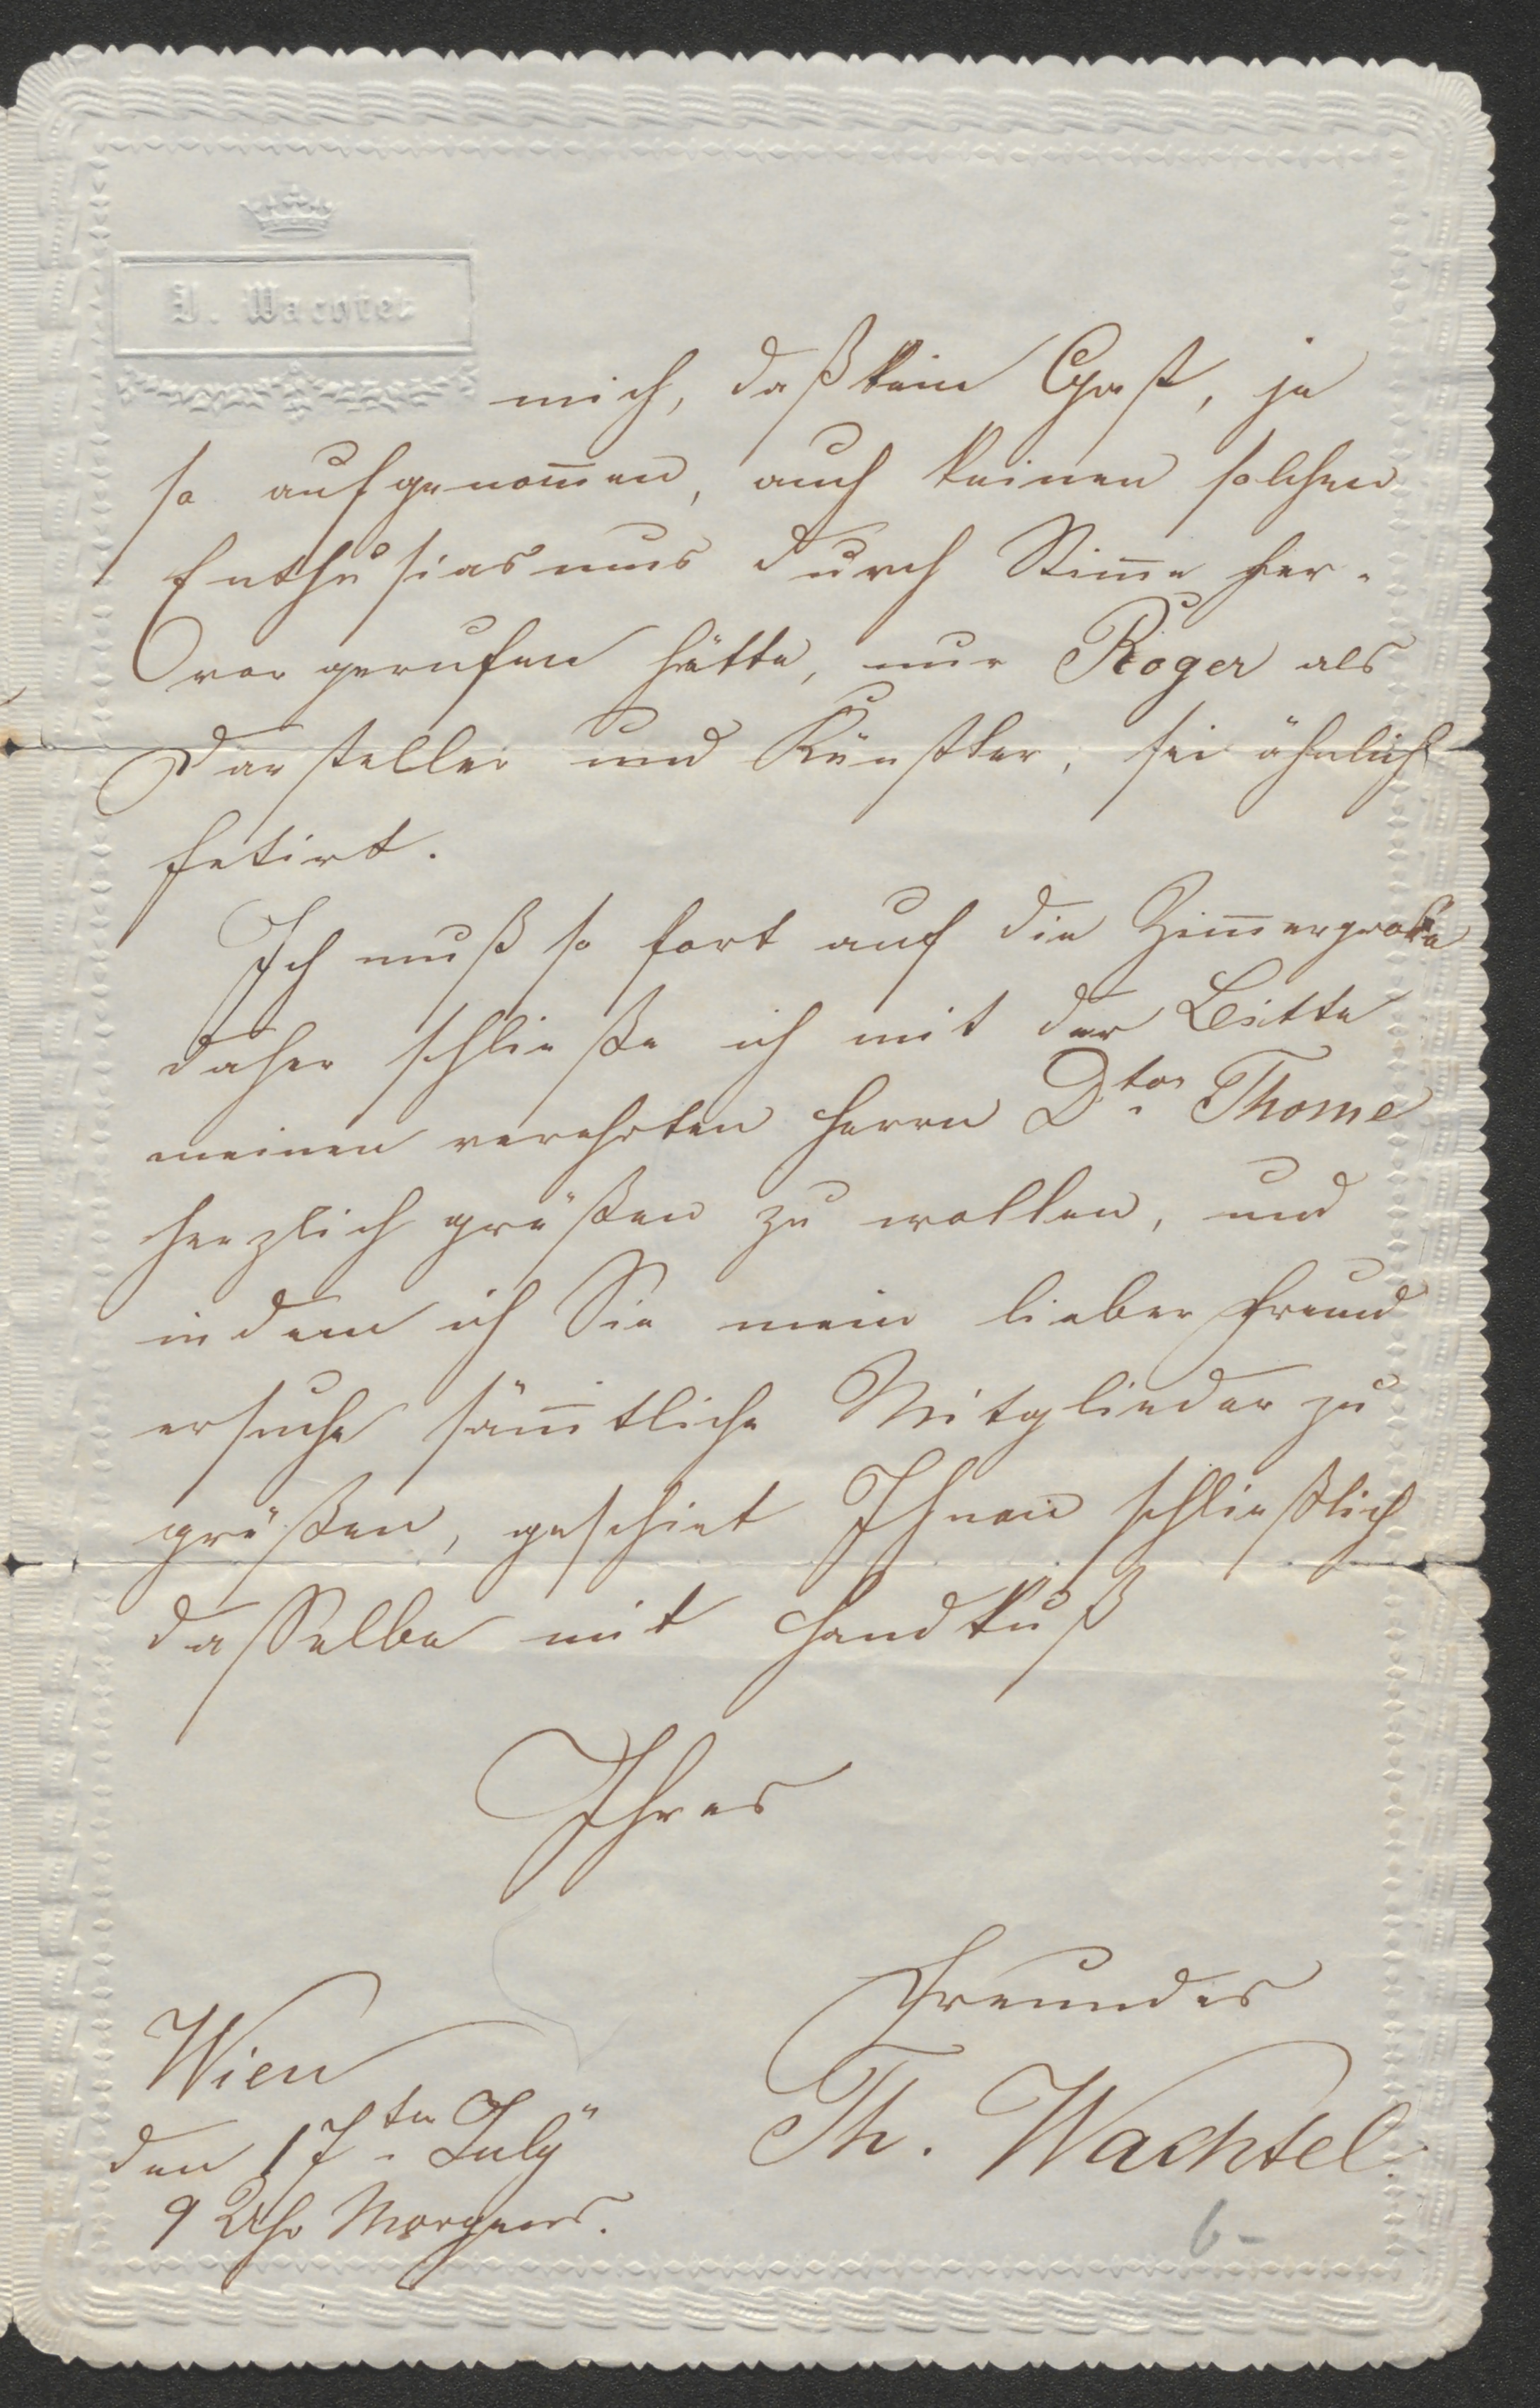 T. Wachtel
mich, daß kein Gast, je
so aufgenom̅en, auch keinen solchen
Enthusiasmus durch Stim̅e her-
vorgerufen hätte, nur Roger als
Darsteller und Künstler, sei ähnlich
fetirt.
Ich muß so fort auf die Zim̅erprobe
daher schließe ich mit der Bitte
meinen verehrten Herrn Dtor Thome
herzlich grüßen zu wollen, und
indem ich Sie mein lieber Freund
ersuche säm̅tliche Mitglieder zu
grüßen, geschiet Ihnen schließlich
dasselbe mit Handkuß
Ihres
Freundes
Th. Wachtel.
Wien
den 17ten July
9 Uhr Morgens.
6-